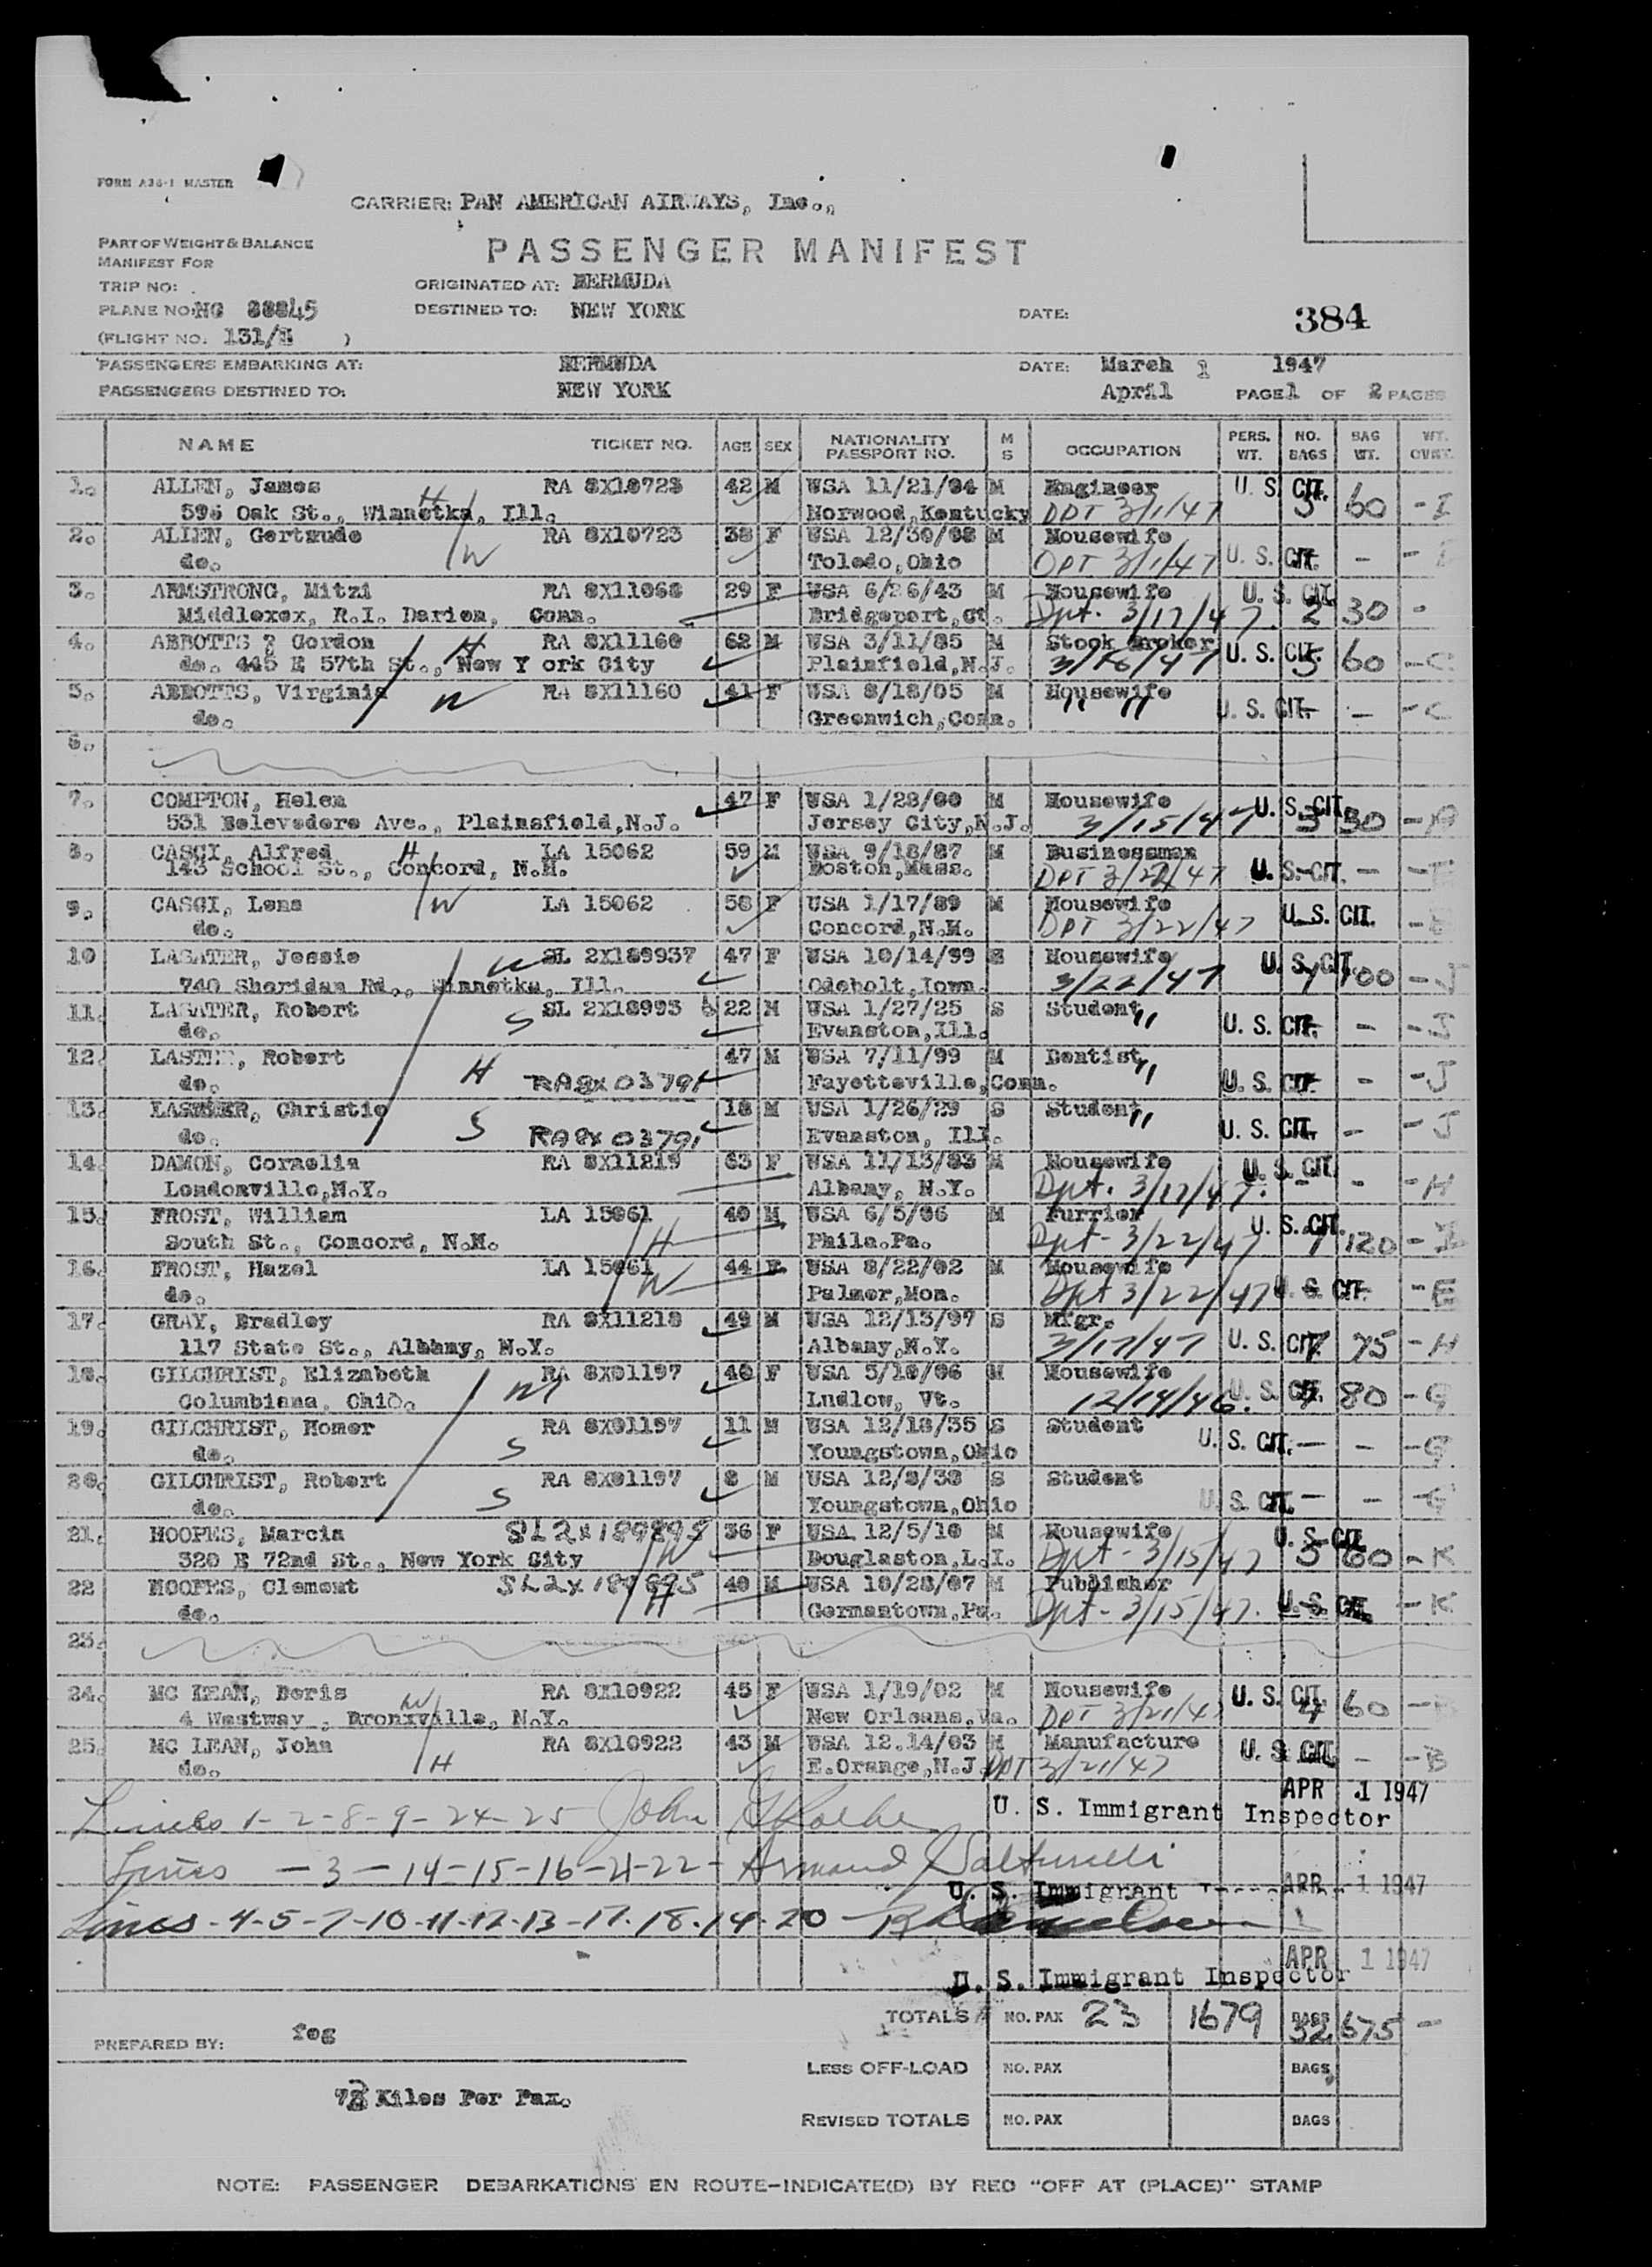 FORM A36-1 MASTER
CARRIER: PAN AMERICAN AIRWAYS, Inc.,
PART OF WEIGHT & BALANCE
MANIFEST FOR
PASSENGER MANIFEST
TRIP NO:
ORIGINATED AT: BERMUDA
PLANE NO: NC 88845
DESTINED TO: NEW YORK
DATE:
384
(FLIGHT NO: 131/ )
PASSENGERS EMBARKING AT: BERMUDA DATE: March 1 1947
PASSENGERS DESTINED TO: NEW YORK April PAGE 1 OF 2 PAGES
NAME TICKET NO. AGE SEX NATIONALITY PASSPORT NO. M S OCCUPATION PERS. WT. NO. BAGS BAG WT. WT. CVRT.
1. ALLEN, James RA 8X10723 42 M USA 11/21/04 M Engineer U. S. CIT. 5 60 - I
596 Oak St., Winnetka, Ill. H Norwood, Kentucky DPT 3/1/47
2. ALLEN, Gertrude RA 8X10723 38 F USA 12/30/08 M Housewife
do. W Toledo, Ohio DPT 3/1/47 U. S. CIT. - -
3. ARMSTRONG, Mitzi RA 8X11068 29 F USA 6/26/43 M Housewife U. S. CIT.
Middlexex, R.I. Darien, Conn. Bridgeport, Ct. Dpt. 3/17/47. 2 30 -
4. ABBOTTS, Gordon H RA 8X11160 62 M USA 3/11/85 M Stock Broker
do. 445 E 57th St., New Y ork City Plainfield, N.J. 3/16/47 U. S. CIT. 5 60 - C
5. ABBOTTS, Virginia W RA 8X11160 41 F USA 8/18/05 M Housewife
do. Greenwich, Conn. " " U. S. CIT. - - C
6.
7. COMPTON, Helen 47 F USA 1/28/00 M Housewife U. S. CIT.
531 Belevedere Ave., Plainsfield, N.J. Jersey City, N.J. 3/15/47 3 30 -
8. CASCI, Alfred H LA 15062 59 M USA 9/18/87 M Businessman
143 School St., Concord, N.H. Boston, Mass. DPT 3/22/47 U. S. CIT. - -
9. CASCI, Lena W LA 15062 58 F USA 1/17/89 M Housewife
do. Concord, N.H. DPT 3/22/47 U. S. CIT. -
10 LASATER, Jessie W SL 2X189937 47 F USA 10/14/99 S Housewife U. S. CIT.
740 Sheridan Rd., Winnetka, Ill. Odebolt, Iowa. 3/22/47 100 - J
11. LASATER, Robert SL 2X18993 6 22 M USA 1/27/25 S Student "
do. S Evanston, Ill. U. S. CIT. - - J
12. LASTER, Robert 47 M USA 7/11/99 M Dentist "
do. H RA8X03791 Fayetteville, Conn. U. S. CIT. - - J
13. LASTER, Christie 18 M USA 1/26/29 S Student "
do. S RA8X03791 Evanston, Ill. U. S. CIT. - - J
14. DAMON, Cornelia RA 8X11219 63 F USA 11/13/83 M Housewife U. S. CIT.
Loudonville, N.Y. Albany, N.Y. Dpt. 3/17/47. - - - H
15. FROST, William LA 15061 40 M USA 6/5/06 M Furrier U. S. CIT.
South St., Concord, N.H. H Phila. Pa. Dpt - 3/22/47 7 120 -
16. FROST, Hazel LA 15061 44 F USA 8/22/02 M Housewife
do. W Palmer, Mon. Dpt 3/22/47 U. S. CIT. - E
17. GRAY, Bradley RA 8X11218 49 M USA 12/13/97 S Mfgr.
117 State St., Albany, N.Y. Albany, N.Y. 3/17/47 U. S. CIT. 75 - H
18. GILCHRIST, Elizabeth RA 8X01197 40 F USA 5/10/06 M Housewife
Columbiana, Ohio. M Ludlow, Vt. 12/14/46. U. S. CIT. 80 - G
19. GILCHRIST, Homer RA 8X01197 11 M USA 12/18/35 S Student
do. S Youngstown, Ohio U. S. CIT. - - - G
20. GILCHRIST, Robert RA 8X01197 8 M USA 12/8/38 S Student
do. S Youngstown, Ohio U. S. CIT. - - - G
21. HOOPES, Marcia SL2X189895 36 F USA 12/5/10 M Housewife U. S. CIT.
320 E 72nd St., New York City W Douglaston, L.I. Dpt - 3/15/47 5 60 - K
22 HOOPES, Clement SL2X189895 40 M USA 10/28/07 M Publisher
do. H Germantown, Pa. Dpt - 3/15/47. U. S. CIT. - K
23.
24. MC LEAN, Doris W RA 8X10922 45 F USA 1/19/02 M Housewife U. S. CIT.
4 Westway, Bronxville, N.Y. New Orleans, Va. DPT 3/21/47 4 60 -
25. MC LEAN, John RA 8X10922 43 M USA 12.14/03 M Manufacture
do. H E. Orange, N.J. DPT 3/21/47 U. S. CIT. - - B
APR 1 1947
Lines 1-2-8-9-24-25 John
U. S. Immigrant Inspector
Lines - 3 - 14-15-16-21-22 - Armand
U. S. Immigrant APR 1 1947
Lines - 4-5-7-10-11-12-13-17-18-19-20 -
APR 1 1947
U. S. Immigrant Inspector
TOTALS NO. PAX 23 1679 BAGS 32 675 -
PREPARED BY: feg
LESS OFF-LOAD NO. PAX BAGS
73 Kilos Per Pax.
REVISED TOTALS NO. PAX BAGS
NOTE: PASSENGER DEBARKATIONS EN ROUTE-INDICATE(D) BY RED "OFF AT (PLACE)" STAMP